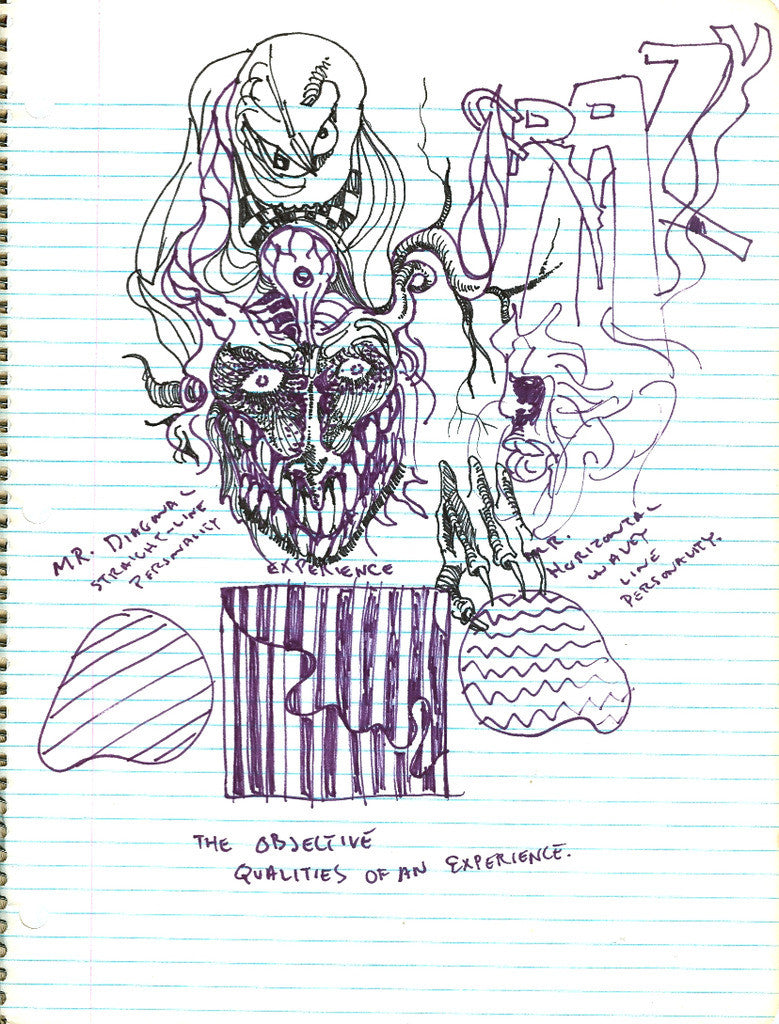 CRAZY
MR. DIAGONAL
STRAIGHT-LINE
PERSONALITY
EXPERIENCE
MR.
HORIZONTAL
WAVEY
LINE
PERSONALITY.
THE OBJECTIVE
QUALITIES OF AN EXPERIENCE.